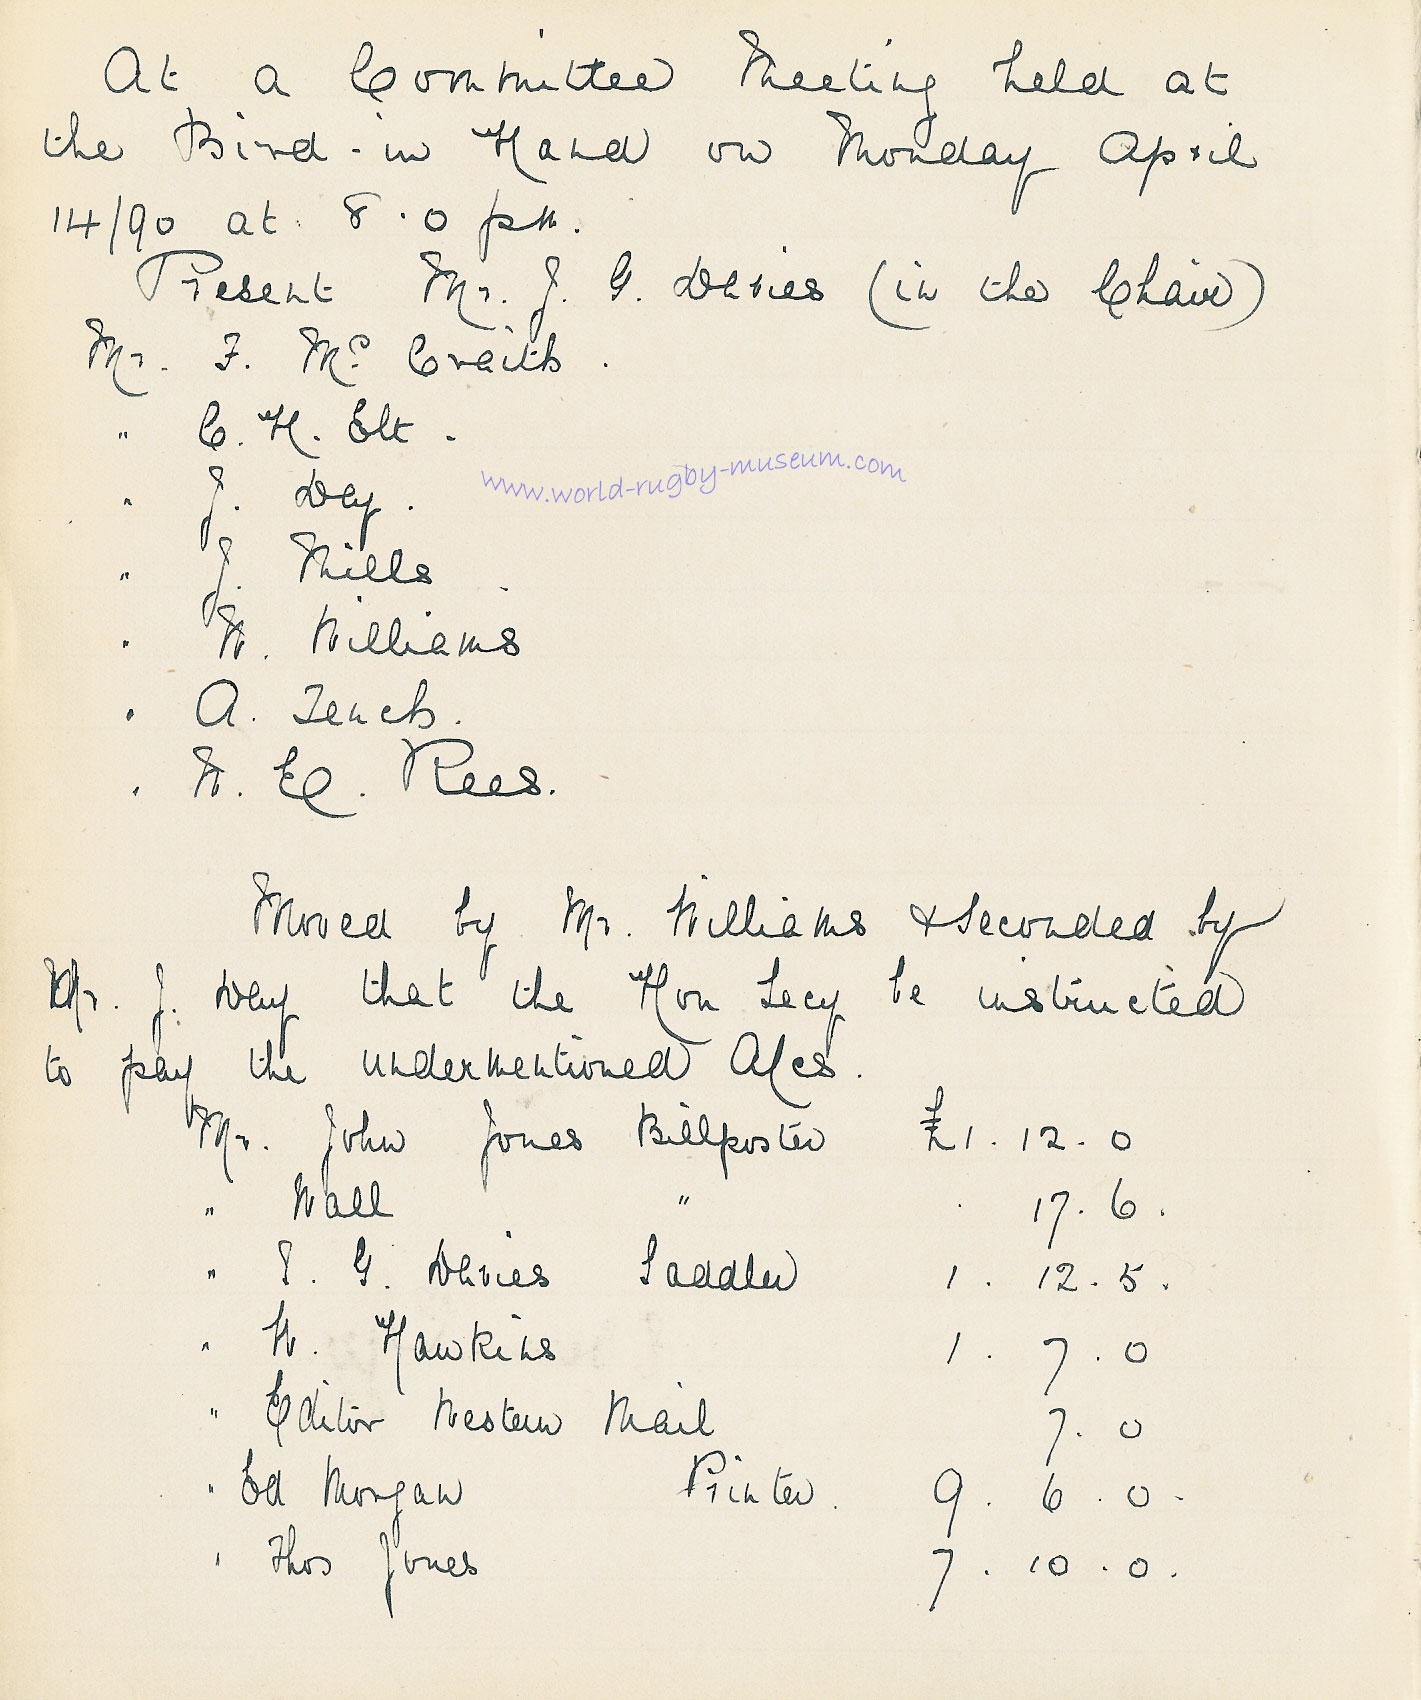 At a Committee Meeting held at
the Bird-in Hand on Monday April
14/90 at 8.0 pm.
Present Mr. J. G. Davies (in the Chair)
Mr. F. Mc Craith.
" C. H. Elt.
" J. Day.
" J. Mills
" W. Williams
" A. Tench.
" W. E. Rees.
www.world-rugby-museum.com
Moved by Mr. Williams & Seconded by
Mr. J. Day that the Hon Secy be instructed
to pay the undermentioned A/cs.
Mr. John Jones Billposter £1. 12. 0
" Wall " 17. 6.
" J. G. Davies Saddler 1. 12. 5.
" W. Hawkins 1. 7. 0
" Editor Western Mail 7. 0
" Ed Morgan Printer. 9. 6. 0.
" Thos Jones 7. 10. 0.